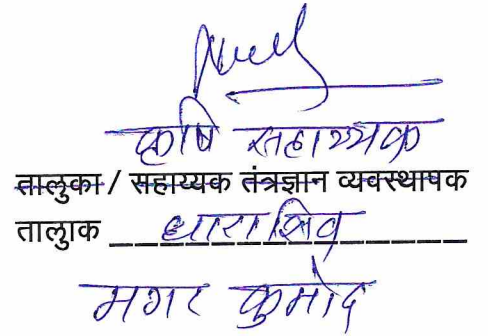 कृषि सहाय्यक
तालुका / सहाय्यक तंत्रज्ञान व्यवस्थापक
तालुाक धाराशिव
मगर कुमोद